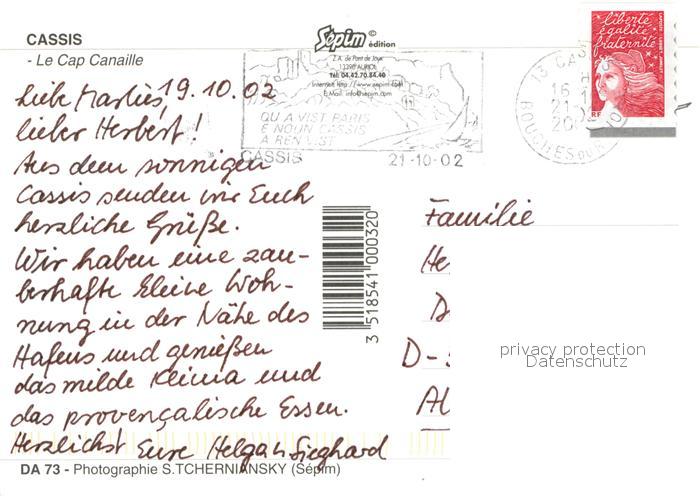 CASSIS
- Le Cap Canaille
Sepim © édition
Z.A. de Pont de Joux
13390 AURIOL
Tél. 04.42.70.84.40
Internet: http://www.sepim.com
E.Mail: info@sepim.com
QU A VIST PARIS
E NOUN CASSIS
A REN VIST
CASSIS 21-10-02
liberté
égalité
fraternité
RF
13 CAS
16
21-1
20
BOUCHES DU R
Liebe Marlies, 19.10.02
lieber Herbert!
Aus dem sonnigen
Cassis senden wir Euch
herzliche Grüße.
Wir haben eine zau-
berhafte kleine Woh-
nung in der Nähe des
Hafens und genießen
das milde Klima und
das provençalische Essen.
Herzlichst Eure Helga u Sieghard
3 518541 000320
Familie
He
D
D-
Al
privacy protection
Datenschutz
DA 73 - Photographie S.TCHERNIANSKY (Sépim)